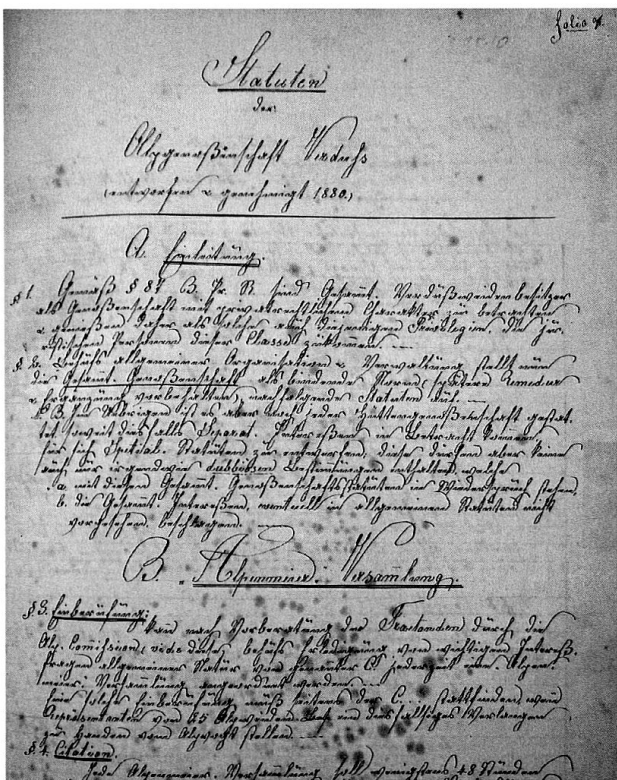 folio 91.
Statuten
der
Alpgenoßenschaft
(entworfen & genehmigt 1880.)
A. Einleitung.
§ 1. Gemäß § 87 B. P. R. sind Gesammt.
als Genoßenschaft mit privatrechtlichem Charakter zu betrachten
& genießen daher als solche auch diejenigen Privilegien die jür-
istischen Personen dieser Classe zukommen
§ 2. Behufs allgemeiner Organisation & Verwaltung stellt nun
die Gesammt. Genoßenschaft als bindende Norm, spätere
& vorbehalten, nachfolgende Statuten auf.
Im Uebrigen ist es aber auch jeder Hüttengenoßenschaft gestat-
tet, soweit diesfalls Separat. Intereßen in Betracht kommen,
für sich Spezial. Statuten zu entwerfen, diese dürfen aber keine
auch nur irgendwie Bestimungen enthalten, welche
a. mit diesen Gesammt. Genoßenschaftsstatuten in Widerspruch stehen,
b. die Gesammt. Intereßen, eventuell in allgemeinen Statuten nicht
vorgesehen, beschlagend.
B. Versamlung.
§ 3. Einberufung: kan nach Vorberatung der Traktanden durch die
Alp. Comission, behufs Erledigung von wichtigen Intereß.
fragen allgemeiner Natur von genannter C. jederzeit eine
Versamlung angeordnet werden.
Eine solche Einberufung muß seitens der C... stattfinden, wen
Repräsentanten von 25 ein diesfallsiges Verlangen
zu Handen vom Alpvogt stellen.
§ 4. Citation.
Jede Versamlung soll wenigstens 48 Stunden